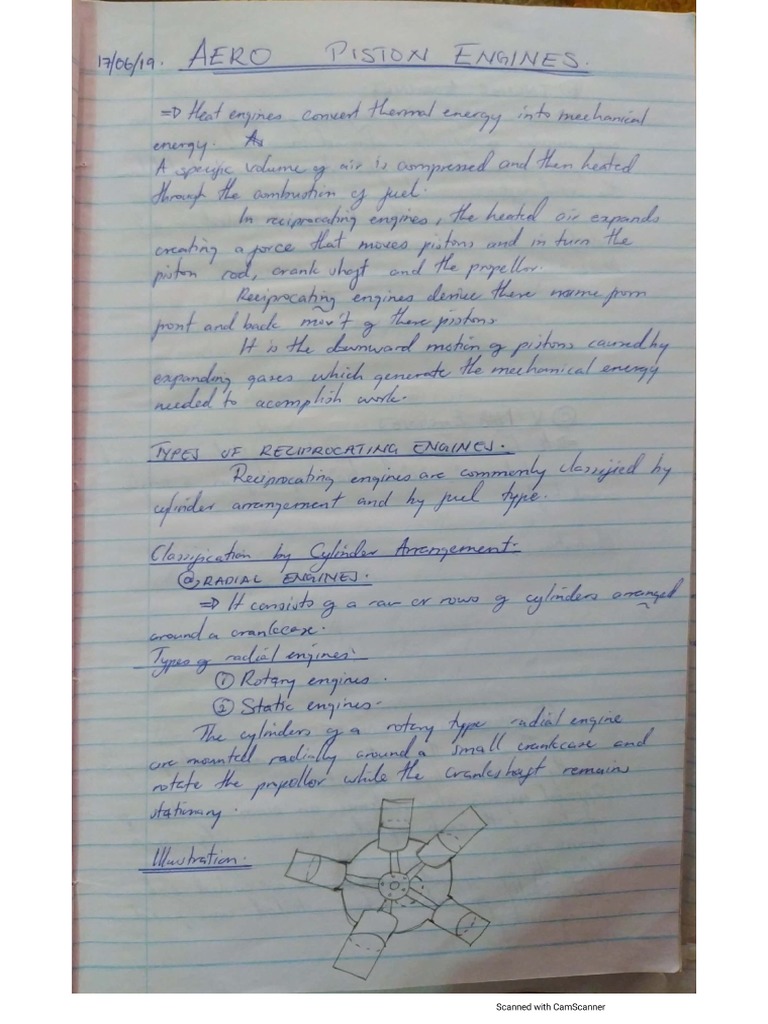 17/06/19. AERO PISTON ENGINES.
⇒ Heat engines convert thermal energy into mechanical
energy. As
A specific volume of air is compressed and then heated
through the combustion of fuel.
In reciprocating engines, the heated air expands
creating a force that moves pistons and in turn the
piston rod, crank shaft and the propellor.
Reciprocating engines derive there name from
front and back mov't of there pistons
It is the downward motion of pistons caused by
expanding gases which generate the mechanical energy
needed to acomplish work.
TYPES OF RECIPROCATING ENGINES.
Reciprocating engines are commonly classified by
cylinder arrangement and by fuel type.
Classification by Cylinder Arrangement.
ⓐ RADIAL ENGINES.
⇒ It consists of a row or rows of cylinders arranged
around a crankcase.
Types of radial engines.
① Rotary engines.
② Static engines.
The cylinders of a rotary type radial engine
are mounted radially around a small crankcase and
rotate the propellor while the crankshaft remains
stationary.
Illustration.
Scanned with CamScanner